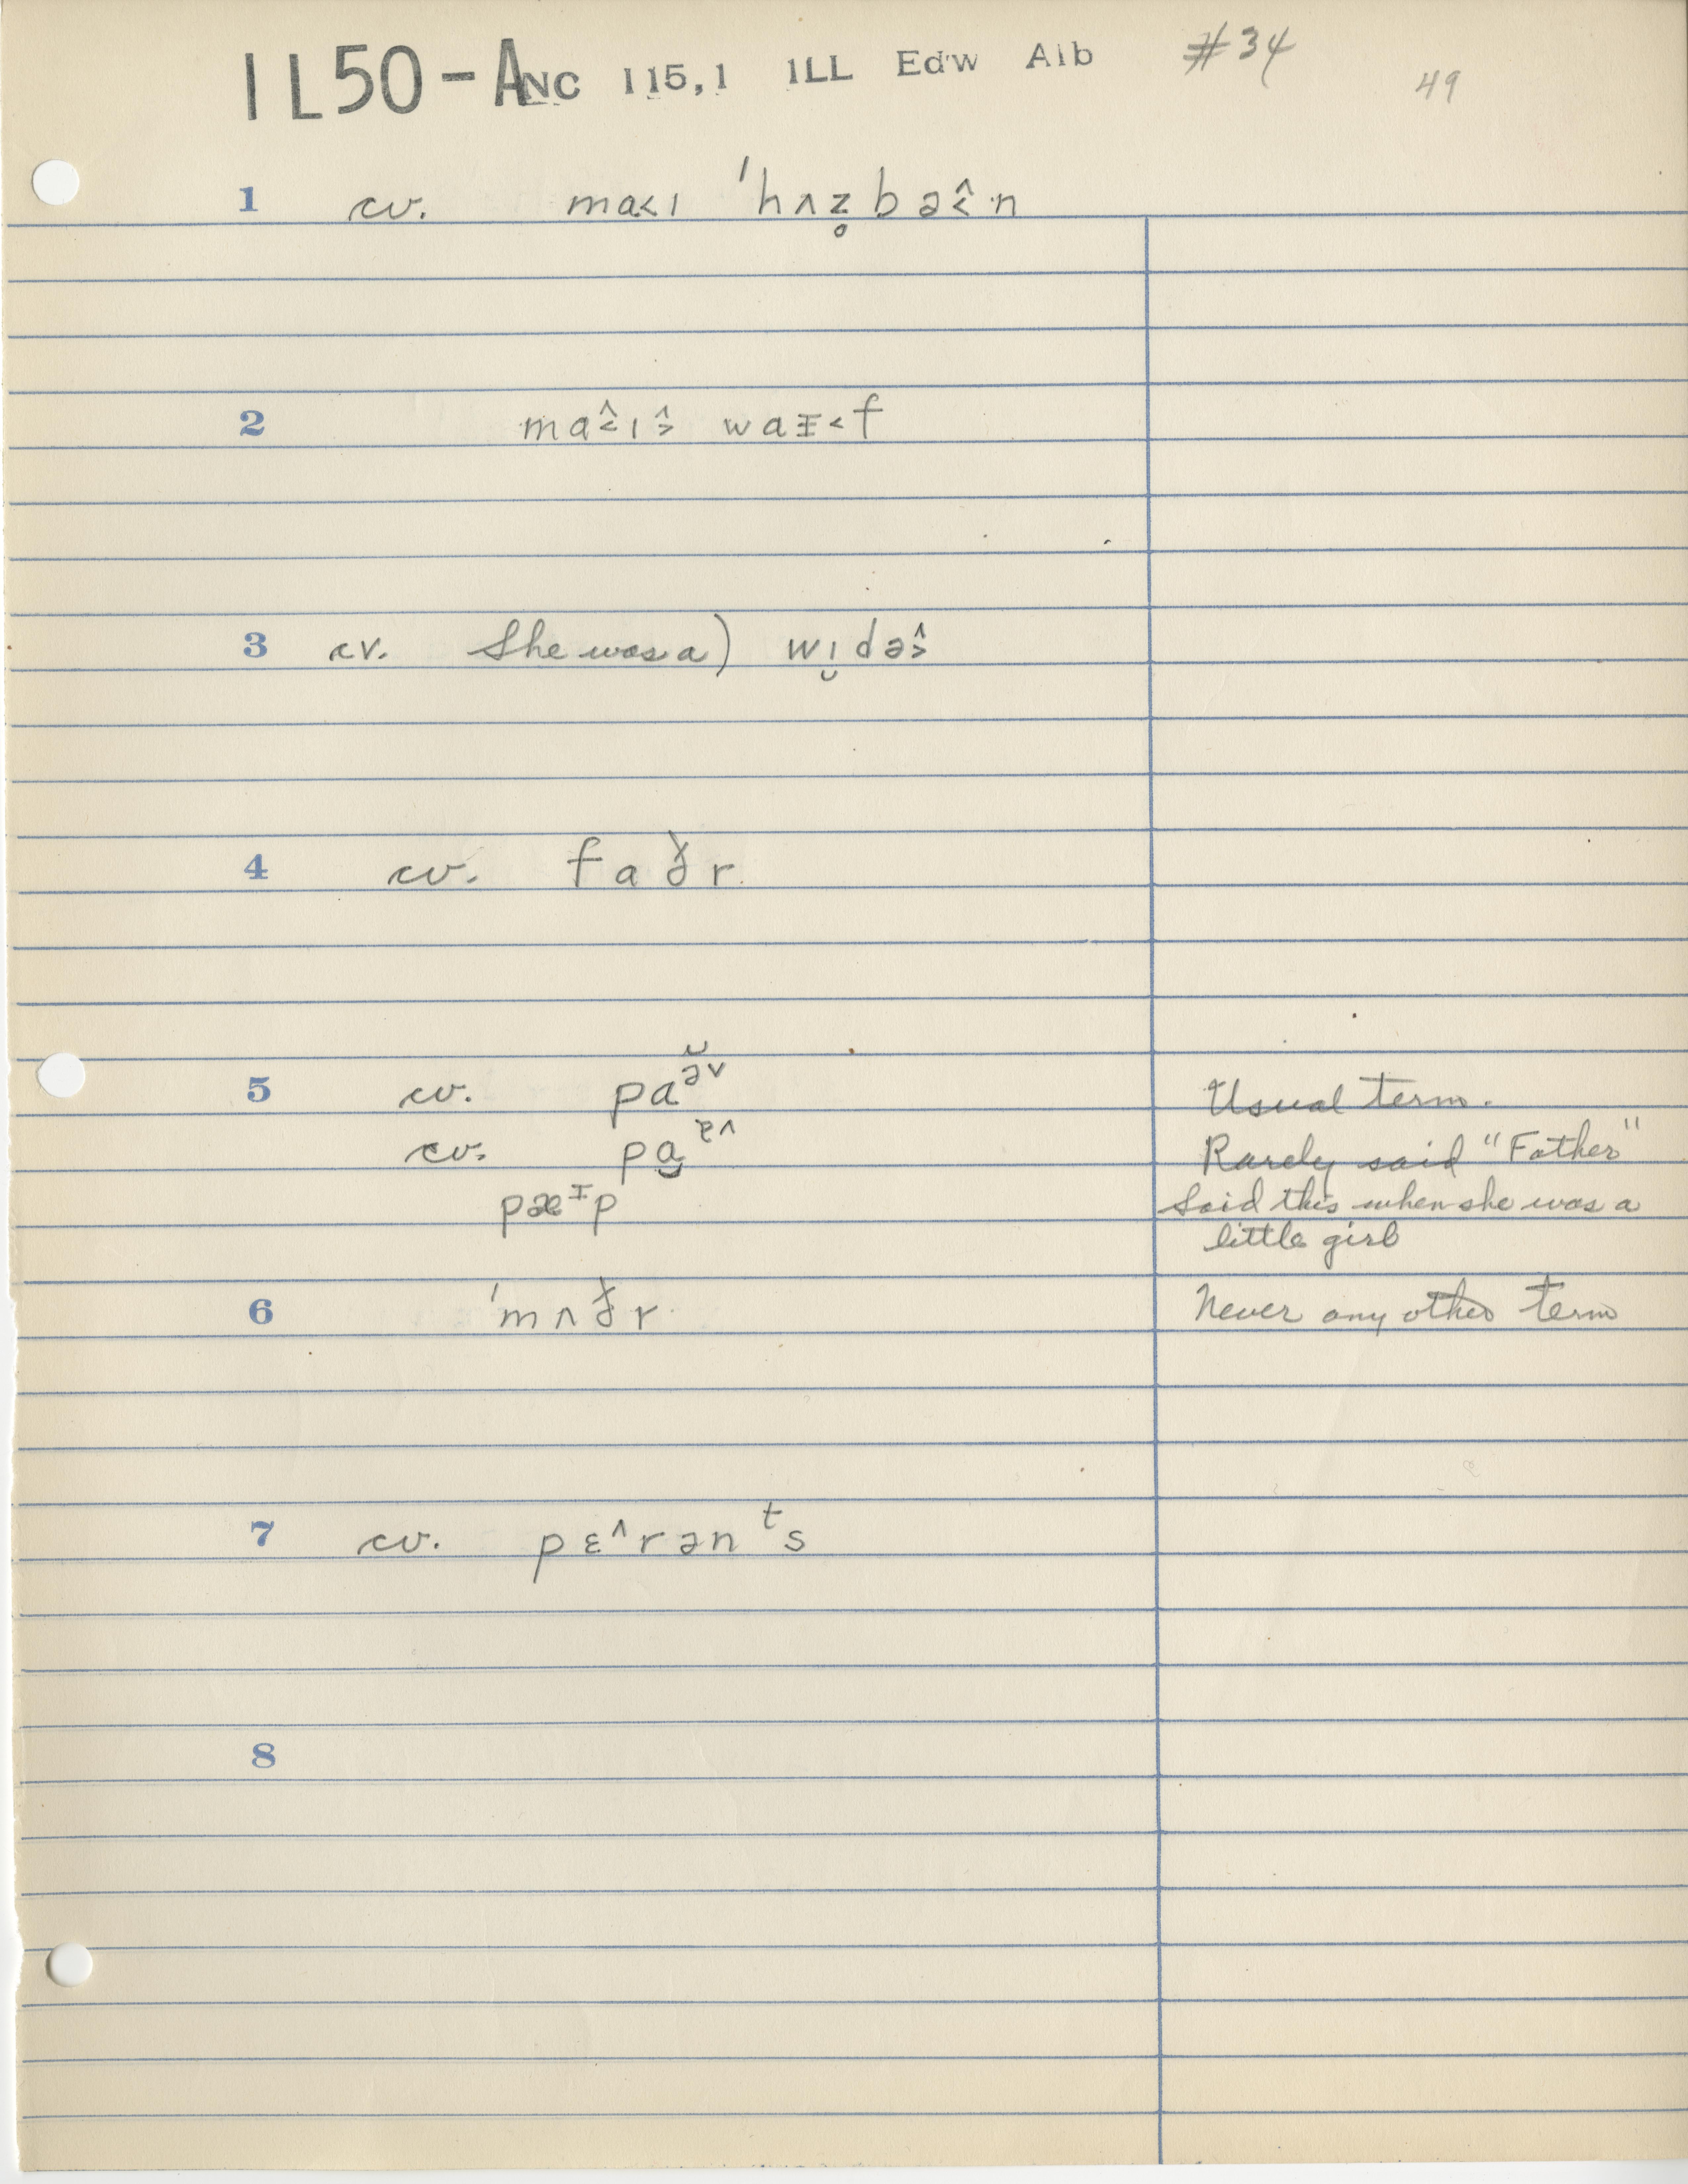 IL50-A NC 115,1 ILL Edw Alb #34 49
1 cv. ma˂ɪ ˈhʌz̥bə̂˂n
2 mâ˂ɪ˄˃ waɪ˂f
3 cv. She was a) wɪ̯də˄˃
4 cv. faðr
5 cv. paə̆˅ Usual term.
cv. pa Rarely said "Father"
pæᵻp Said this when she was a
little girl
6 ˈmʌðr Never any other term
7 cv. pɛ˄rənᵗs
8